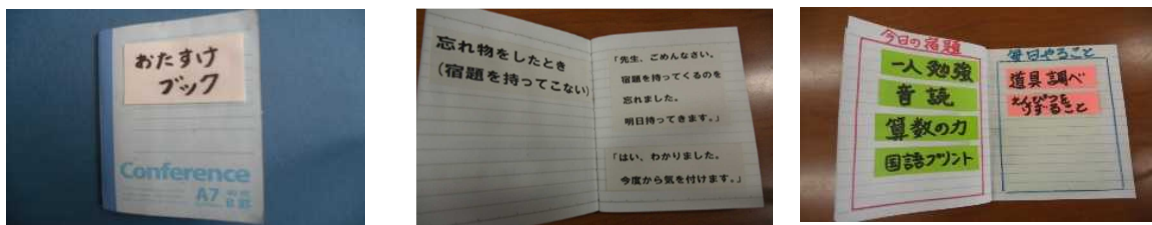 おたすけ
ブック
Conference
A7
忘れ物をしたとき
(宿題を持ってこない)
「先生、ごめんなさい。
宿題を持ってくるのを
忘れました。
明日持ってきます。」
「はい、わかりました。
今度から気を付けます。」
今日の宿題
一人勉強
音読
算数の力
国語プリント
毎日やること
道具調べ
えんぴつを
けずること